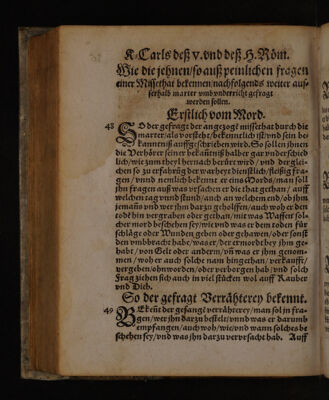 K. Carls deß v. vnd deß H. Röm.
Wie die jehnen / so auß peinlichen fragen
einer Missethat bekennen / nachfolgends weiter aus-
serhalb marter vmb vnderricht gefragt
werden sollen.
Erstlich vom Mord.
48 SO der gefragt der angezogē missethat durch die
marter / als vorsteht / bekenntlich ist / vnd sein be-
kanntnuß auffgeschrieben wird. So sollen jhnen
die Verhörer seiner bekantnuß halber gar vnderschied
lich / wie zum theyl hernach berürt wird / vnd der glei-
chen so zu erfahrūg der warheyt dienstlich / fleissig fra-
gen / vnnd nemlich bekennt er eins Mords / man soll
jhn fragen auß was vrsachen er die that gethan / auff
welchen tag vnnd stund / auch an welchem end / ob jhm
jemāds vnd wer jhm darzu geholffen / auch wo er den
todē hin vergraben oder gethan / mit was Waffen sol-
cher mord beschehen sey / wie vnd was er dem todten für
schläge oder Wunden geben oder gehawen / oder sonst
den vmbbracht habe / was er / der ermordt bey jhm ge-
habt / von Gelt oder anderm / vn̄ was er jhm genom-
men / wo er auch solche nam hingethan / verkaufft /
vergeben / ohnworden / oder verborgen hab / vnd solch
Frag ziehen sich auch in viel stücken wol auff Rauber
vnd Dieb.
So der gefragt Verrähterey bekennt.
49 BEkent der gefangē verrähterey / man sol jn fra-
gen / wer jhn darzu bestelt / vnnd was er darumb
empfangen / auch wo / wie / vnd wann solches be
schehen sey / vnd was jhn darzu vervrsacht hab. Auff